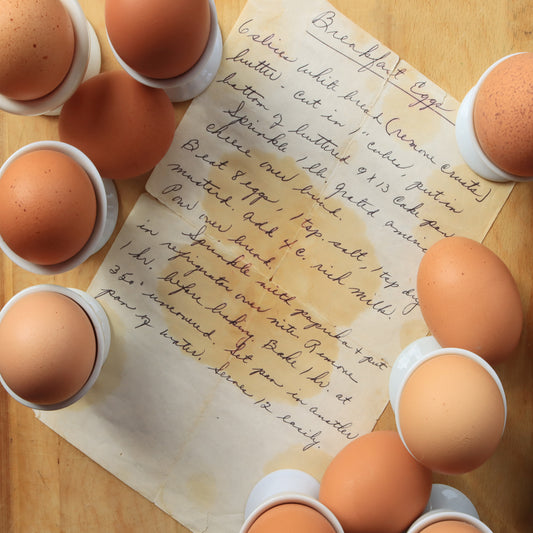 Breakfast Eggs
6 slices white bread (remove crusts)
butter - cut in 1" cubes, put in
bottom of buttered 9 x 13 cake pan
Sprinkle 1 lb. grated ameri.
cheese over bread.
Beat 8 eggs, 1 tsp. salt, 1 tsp dry
mustard. Add 4 c. rich milk.
Pour over bread.
Sprinkle with paprika & put
in refrigerator over nite. Remove
1 hr. before baking. Bake 1 hr. at
350° uncovered. Set pan in another
pan of water. Serves 12 easily.